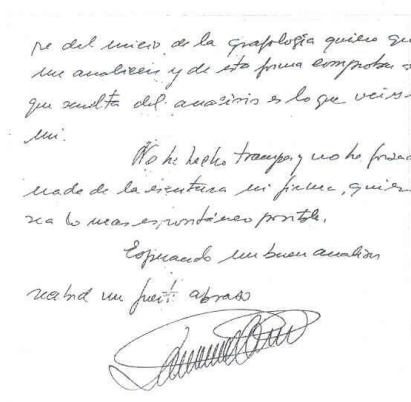 del inicio de la grafología quiero
me analiceis y de esta forma comprobar
que resulta del analisis es lo que veis
mi.
No he hecho trampa y no he
nada de la escritura ni firma,
sea lo mas espontáneo posible.
Esperando un buen analisis
recibid un fuerte abrazo